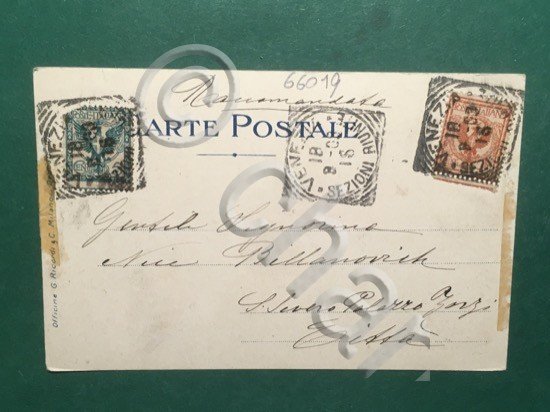 66019
Raccomandata
CARTE POSTALE
VENEZIA
18 9 03 16
SEZIONI RIUNITE
Gentile Signorina
Nice Bellanovich
S. Palazzo Zorzi
Città
Officine G. Ricordi & C. Milano
© char